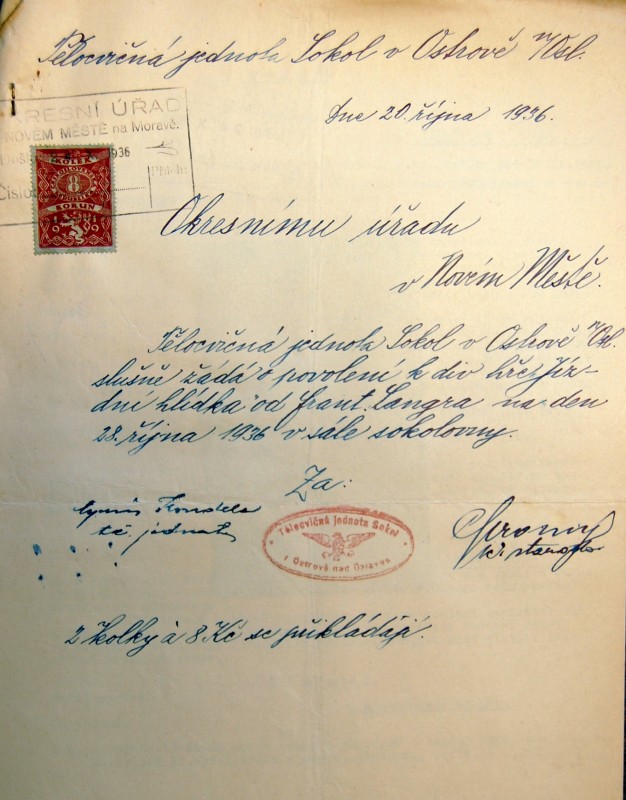 Tělocvičná jednota Sokol v Ostrově n/Osl.
Dne 20. října 1936.
OKRESNÍ ÚŘAD
NOVÉM MĚSTĚ na Moravě.
Došlo 1936
Číslo
Příloh
KOLEK
8
KORUN
Okresnímu úřadu
v Novém Městě.
Tělocvičná jednota Sokol v Ostrově n/Osl.
slušně žádá o povolení k div hře: Jíz-
dní hlídka od Frant. Langra na den
28. října 1936 v sále sokolovny.
Za:
t.č. jednatel
Tělocvičná jednota Sokol
v Ostrově nad Oslavou
t.č. starosta
2 kolky à 8 Kč se přikládají.